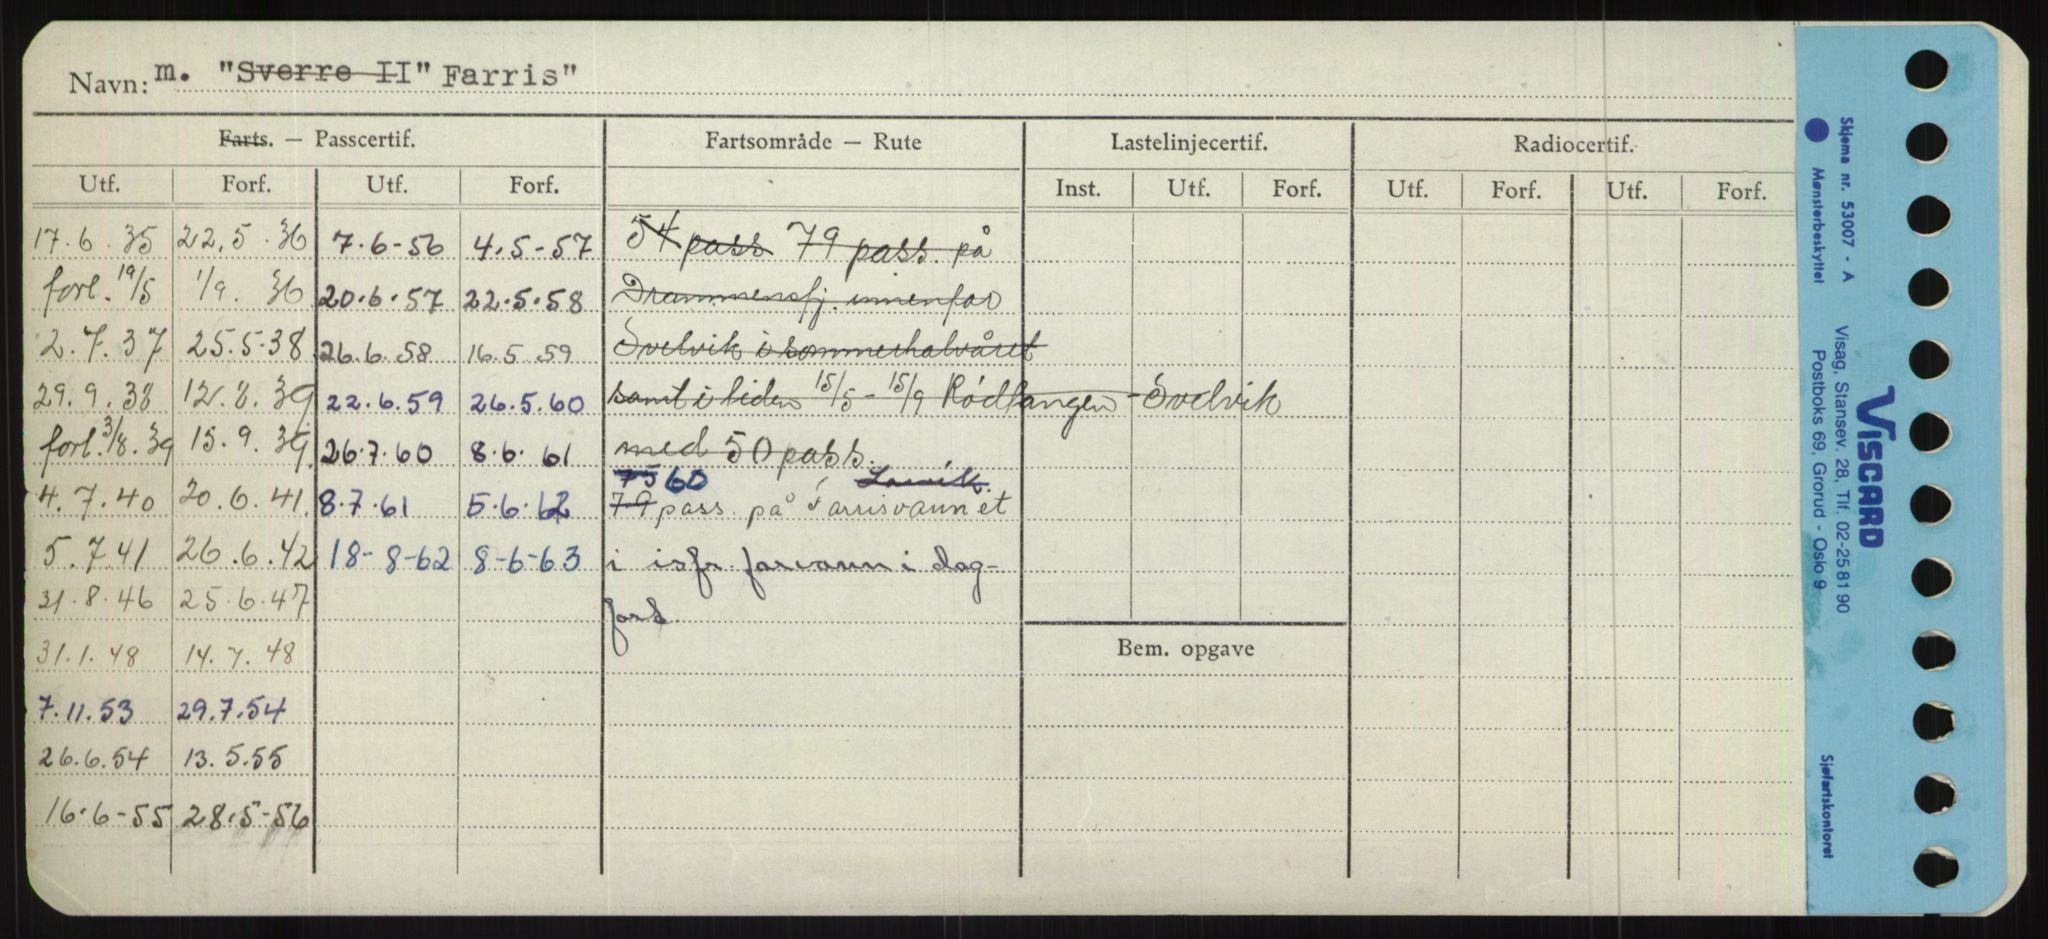 Navn: m. "Sverre II" Farris"
Farts. — Passcertif. Fartsområde — Rute Lastelinjecertif. Radiocertif.
Utf. Forf. Utf. Forf. Inst. Utf. Forf. Utf. Forf. Utf. Forf.
17.6.35 22.5.36 7.6-56 4.5-57 54 pass 79 pass. på
forl. 19/5 1/9. 36 20.6.57 22.5.58 Drammensfj. innenfor
2.7.37 25.5.38 26.6.58 16.5.59 Svelvik i sommerhalvåret
29.9.38 12.8.39 22.6.59 26.5.60 samt i tiden 15/5 - 15/9 Rødtangen - Svelvik
forl. 3/8.39 15.9.39 26.7.60 8.6.61 med 50 pass.
75 60 Larvik
4.7.40 20.6.41 8.7.61 5.6.62 79 pass. på Farrisvannet
5.7.41 26.6.42 18-8-62 8-6-63 i isfr farvann i dag-
31.8.46 25.6.47 fart
31.1.48 14.7.48 Bem. opgave
7.11.53 29.7.54
26.6.54 13.5.55
16.6-55 28.5-56
Skjema nr. 53007 - A
Mønsterbeskyttet
Visag, Stansev. 28, Tlf. 02-25 81 90
Postboks 69, Grorud - Oslo 9
VISCARD
Sjøfartskontoret